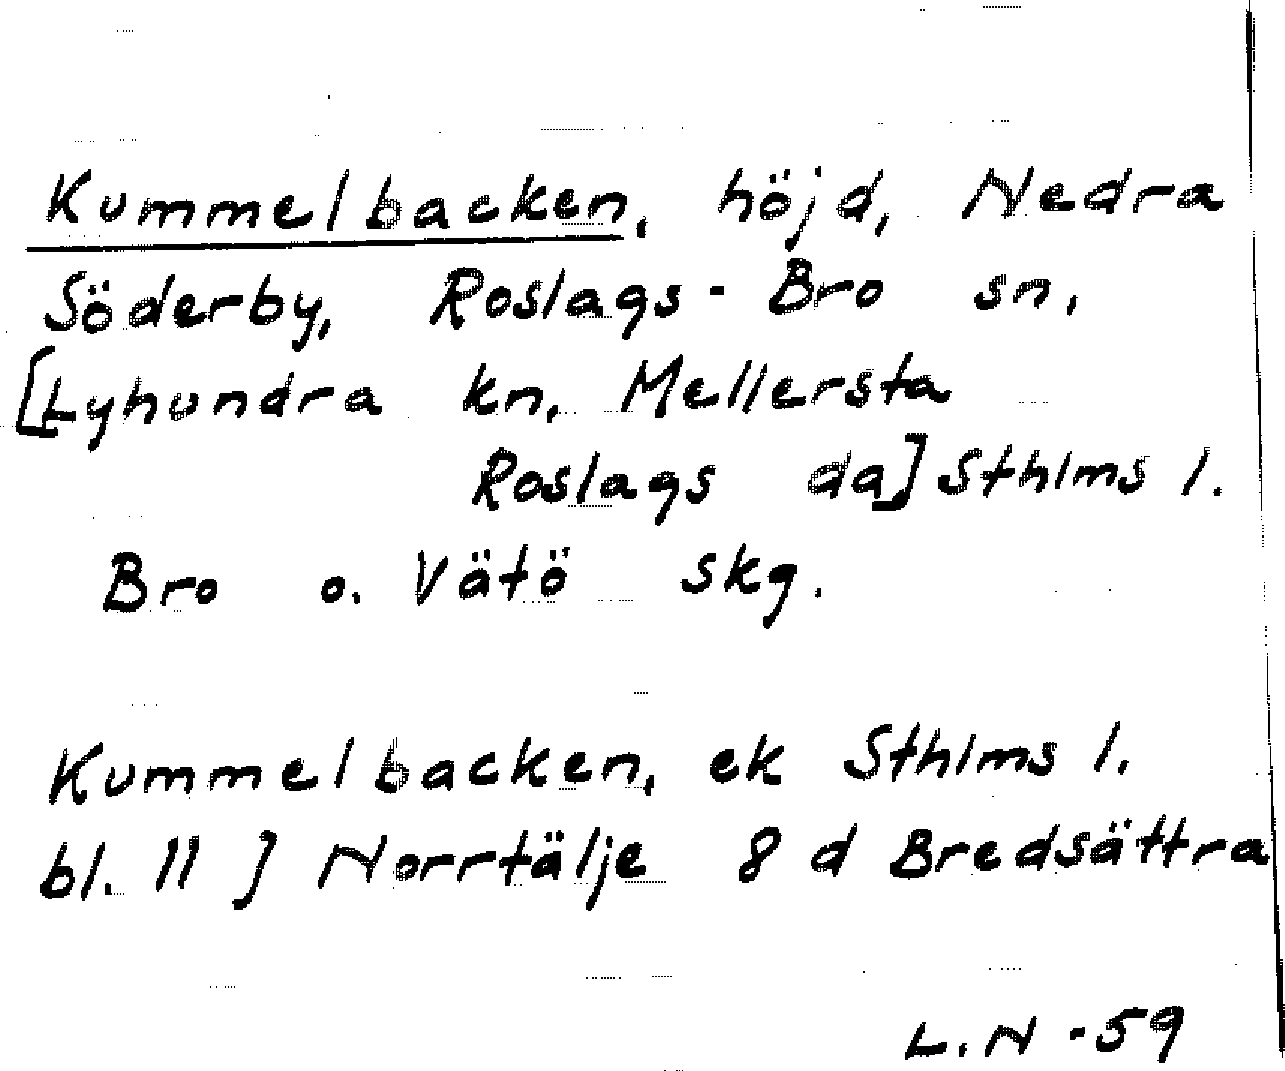 Kummelbacken, höjd, Nedra
Söderby, Roslags-Bro sn,
[Lyhundra kn, Mellersta
Roslags da] Sthlms l.
Bro o. Vätö skg.
Kummelbacken, ek Sthlms l.
bl. 11 J Norrtälje 8 d Bredsättra
L.N -59